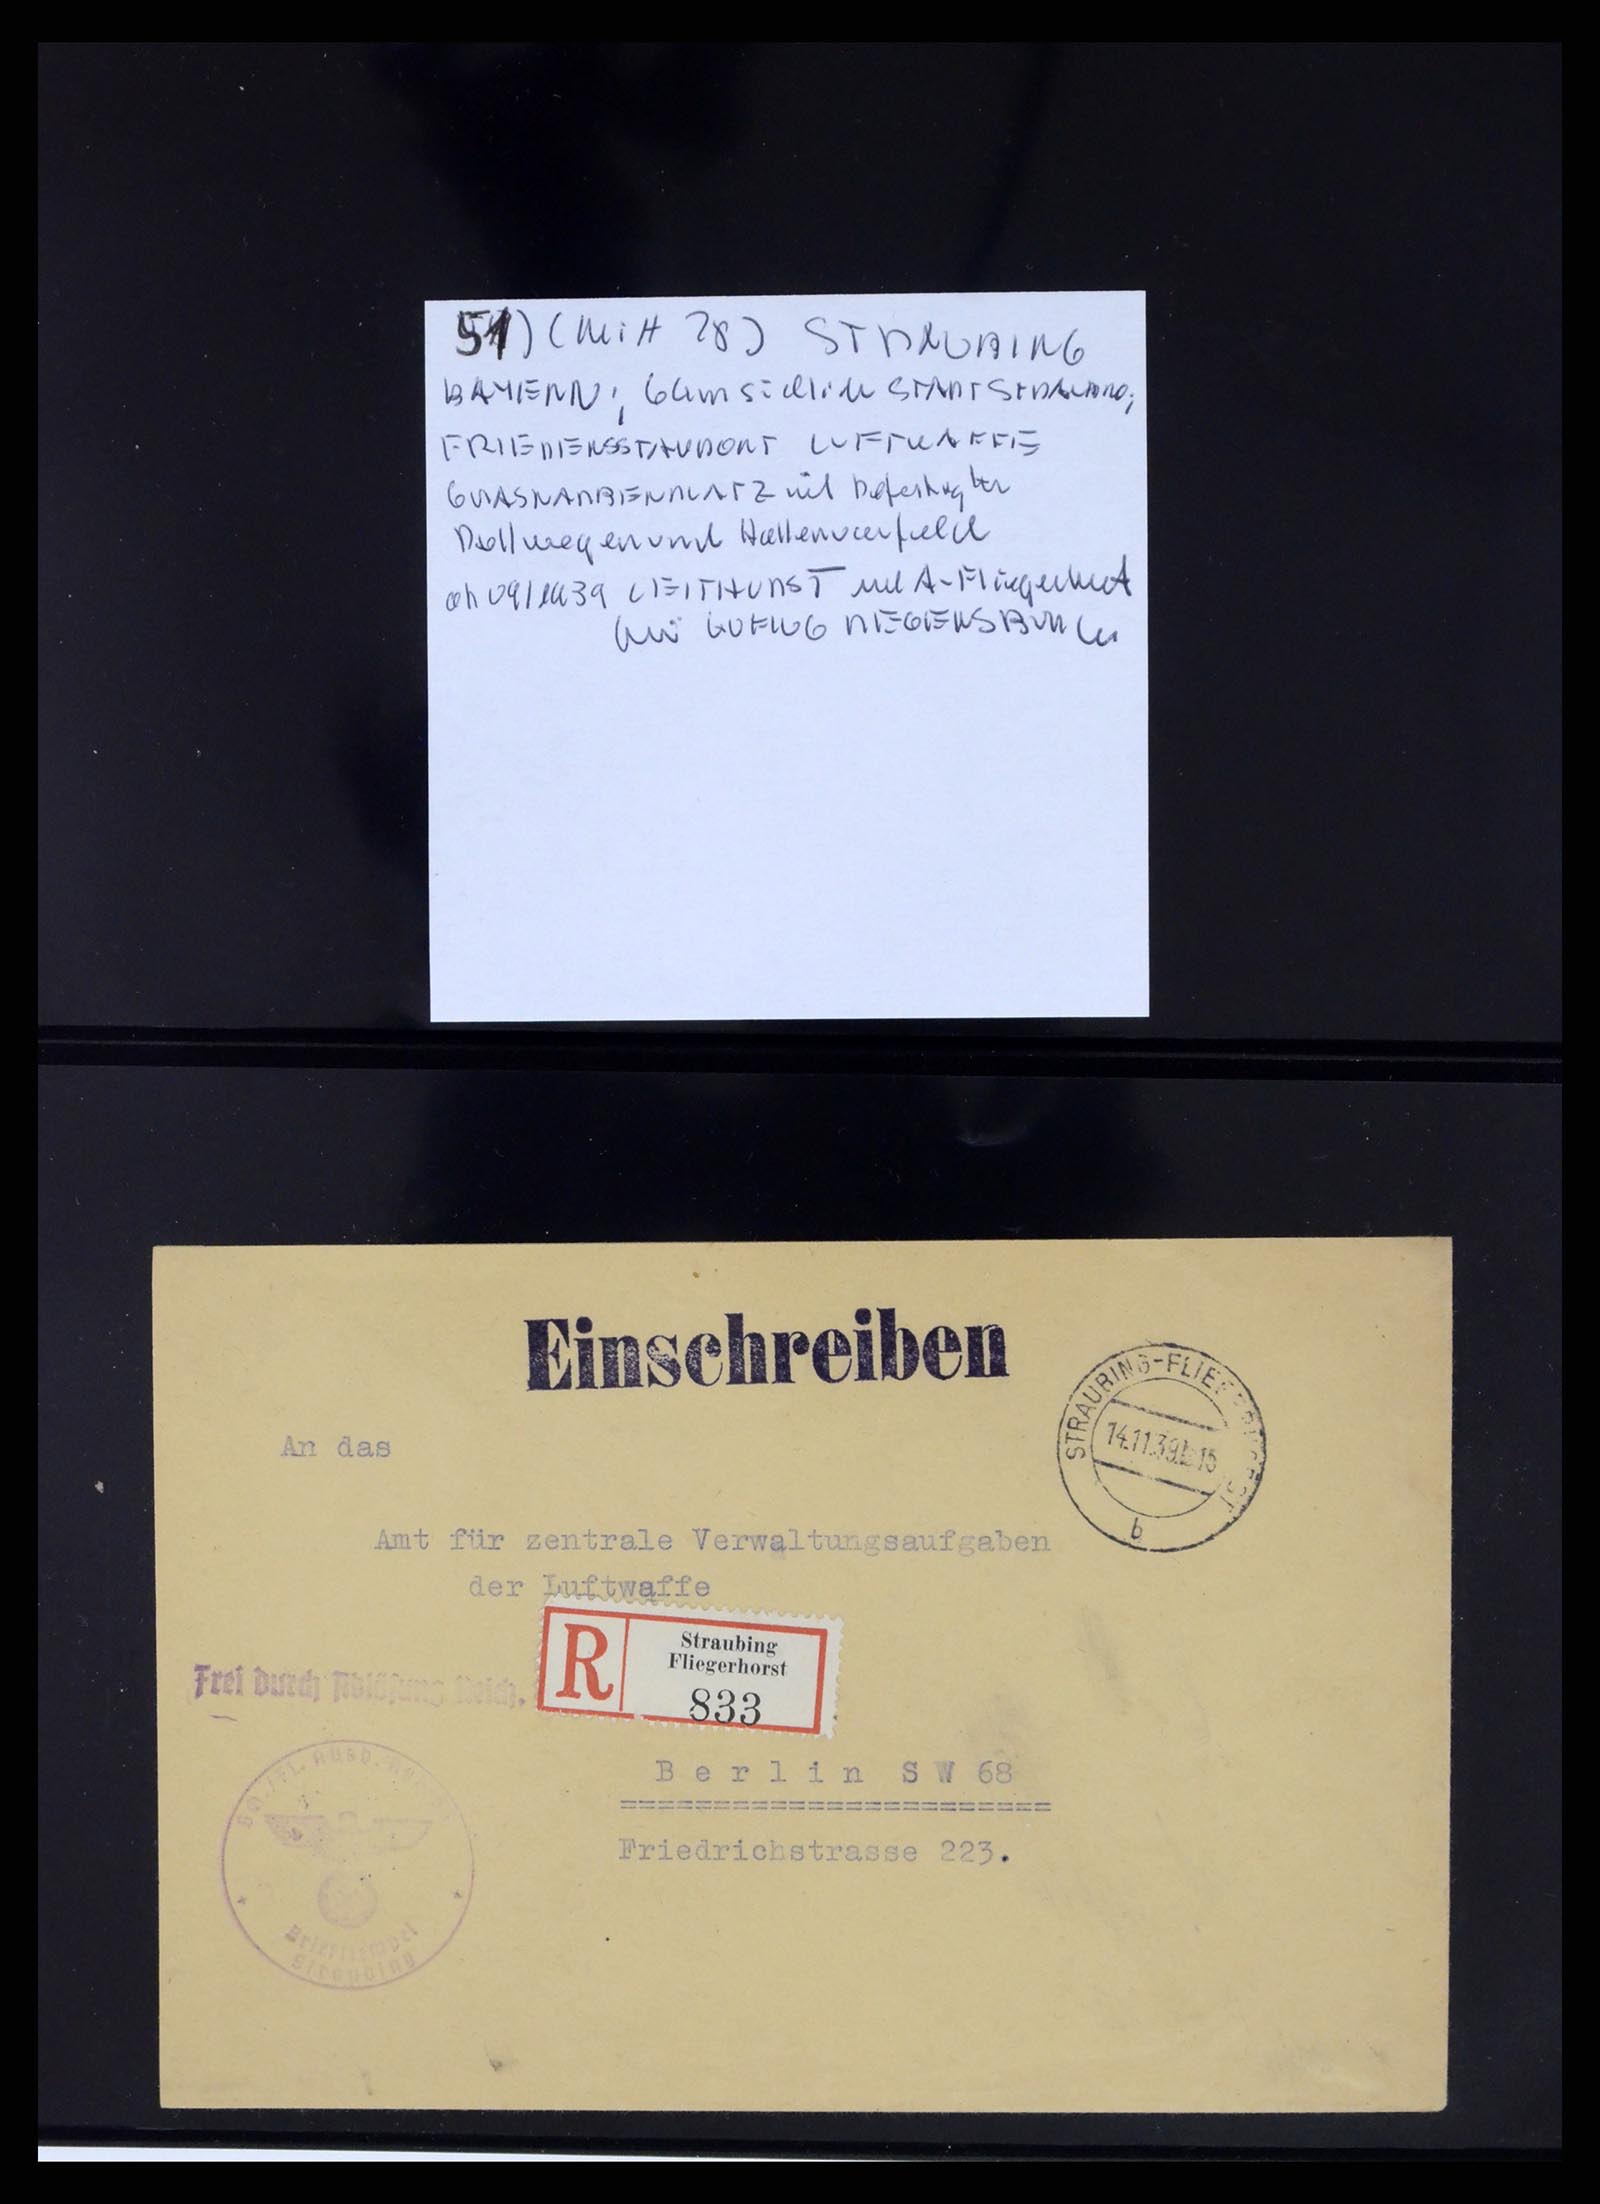 51) (Mitt 28) STRAUBING
BAYERN; 6km südlich STADT STRAUBING;
FRIEDENSSTANDORT LUFTWAFFE
GRASNARBENPLATZ mit befestigten
Rollwegen und Hallenvorfeld
ab 09/1939 LEITHORST mit A-Fliegerhorst
im REGENSBURG
Einschreiben
STRAUBING-FLIEGERHORST
14.11.39. 15
b
An das
Amt für zentrale Verwaltungsaufgaben
der Luftwaffe
R
Straubing
Fliegerhorst
833
Frei durch Ablösung Reich.
Berlin SW 68
=======================
Friedrichstrasse 223.
Fl. Ausb.
Briefstempel
Straubing